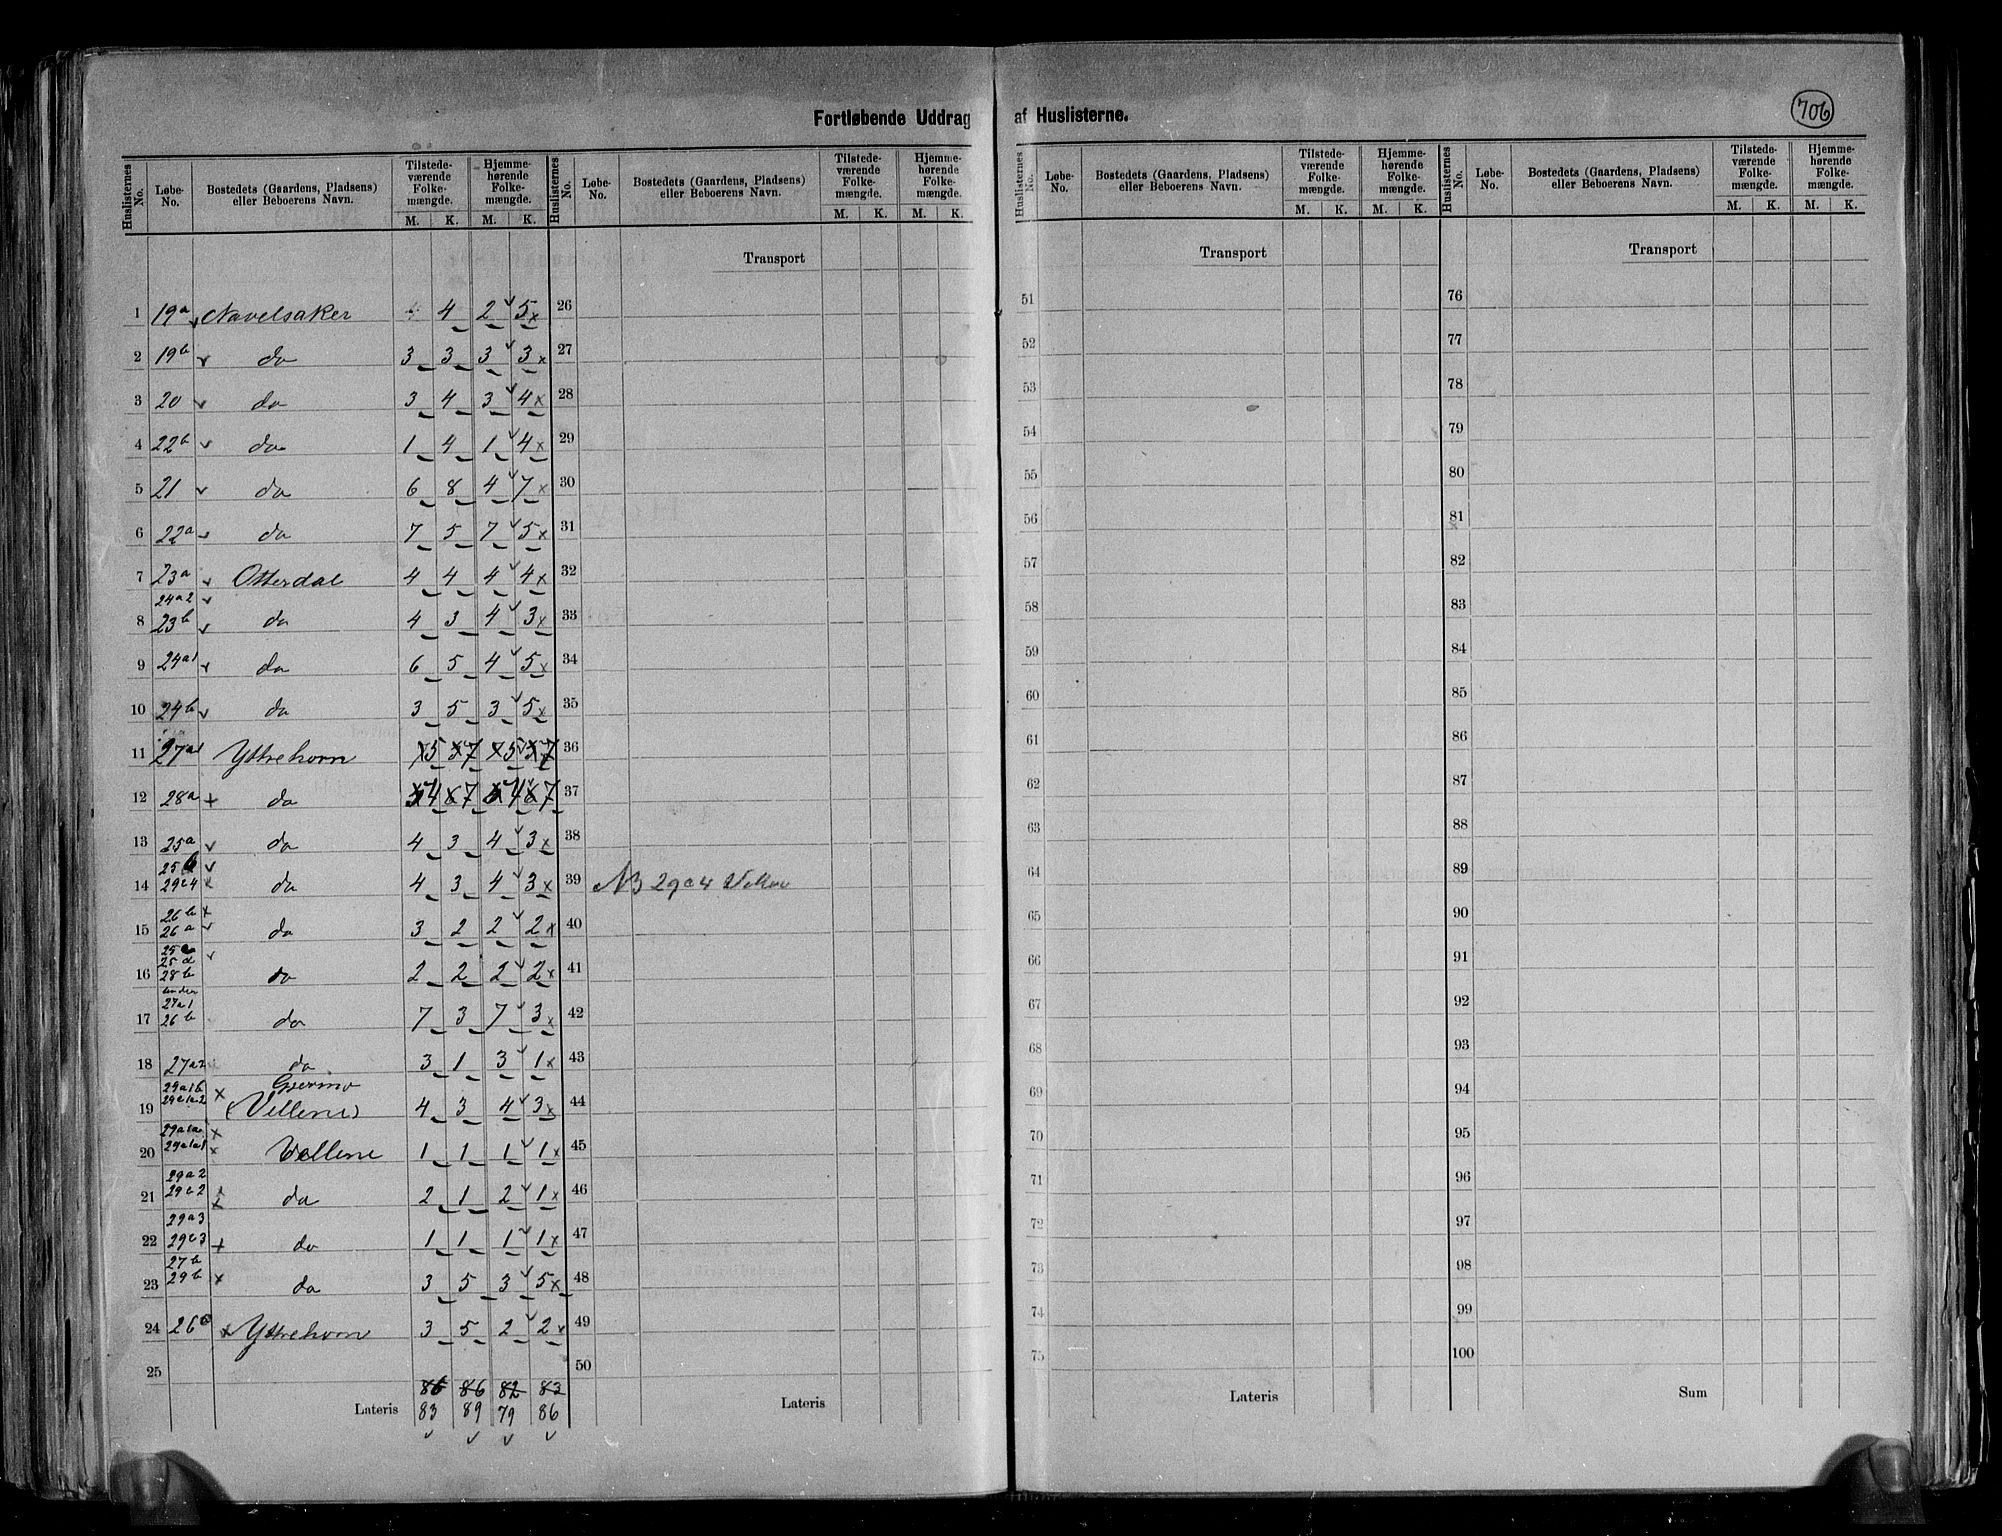 Fortløbende Uddrag af Huslisterne.
706
Huslisternes No. | Løbe-No. | Bostedets (Gaardens, Pladsens) eller Beboerens Navn. | Tilstedeværende Folkemængde. M. K. | Hjemmehørende Folkemængde. M. K.
Huslisternes No. | Løbe-No. | Bostedets (Gaardens, Pladsens) eller Beboerens Navn. | Tilstedeværende Folkemængde. M. K. | Hjemmehørende Folkemængde. M. K.
Huslisternes No. | Løbe-No. | Bostedets (Gaardens, Pladsens) eller Beboerens Navn. | Tilstedeværende Folkemængde. M. K. | Hjemmehørende Folkemængde. M. K.
Huslisternes No. | Løbe-No. | Bostedets (Gaardens, Pladsens) eller Beboerens Navn. | Tilstedeværende Folkemængde. M. K. | Hjemmehørende Folkemængde. M. K.
1 19a Navelsaker 4 4 2 5
2 19b do 3 3 3 3
3 20 do 3 4 3 4
4 22b do 1 4 1 4
5 21 do 6 8 4 7
6 22a do 7 5 7 5
7 23a Otterdal 4 4 4 4
24a2
8 23b do 4 3 4 3
9 24a1 do 6 5 4 5
10 24b do 3 5 3 5
11 27a1 Yttrehorn 5 7 5 7
12 28a do 4 7 4 7
13 25a do 4 3 4 3
25b
14 29c4 do 4 3 4 3
26b
15 26a do 3 2 2 2
25c
25d
16 28b do 2 2 2 2
under
27a1
17 26b do 7 3 7 3
18 27a2 do 3 1 3 1
29a1b Gjermo
29c1a2
19 (Vellene) 4 3 4 3
29a1a
20 29a1a1 Vellene 1 1 1 1
29a2
21 29c2 do 2 1 2 1
29a3
22 29c3 do 1 1 1 1
27b
23 29b do 3 5 3 5
24 26c Yttrehorn 3 5 2 2
25
86 86 82 83
Lateris 83 89 79 86
Transport
26
27
28
29
30
31
32
33
34
35
36
37
38
39 NB 29c4
40
41
42
43
44
45
46
47
48
49
50
Lateris
Transport
51
52
53
54
55
56
57
58
59
60
61
62
63
64
65
66
67
68
69
70
71
72
73
74
75
Lateris
Transport
76
77
78
79
80
81
82
83
84
85
86
87
88
89
90
91
92
93
94
95
96
97
98
99
100
Sum